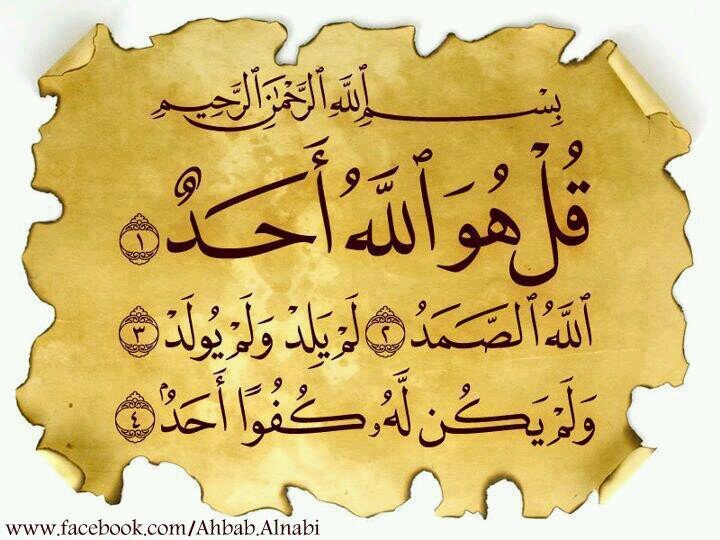 بِسْمِ ٱللَّهِ ٱلرَّحْمَٰنِ ٱلرَّحِيمِ
قُلْ هُوَ ٱللَّهُ أَحَدٌ ١
ٱللَّهُ ٱلصَّمَدُ ٢ لَمْ يَلِدْ وَلَمْ يُولَدْ ٣
وَلَمْ يَكُن لَّهُۥ كُفُوًا أَحَدٌۢ ٤
www.facebook.com/Ahbab.Alnabi